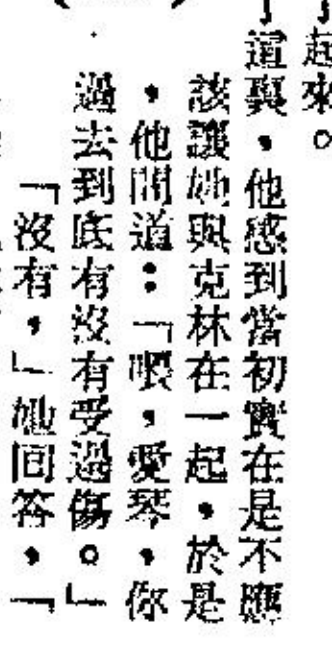 了起來。
了這裏，他感到當初實在是不應
該讓她與克林在一起，於是
，他問道：「喂，愛琴，你
過去到底有沒有受過傷。」
「沒有，」她回答，「